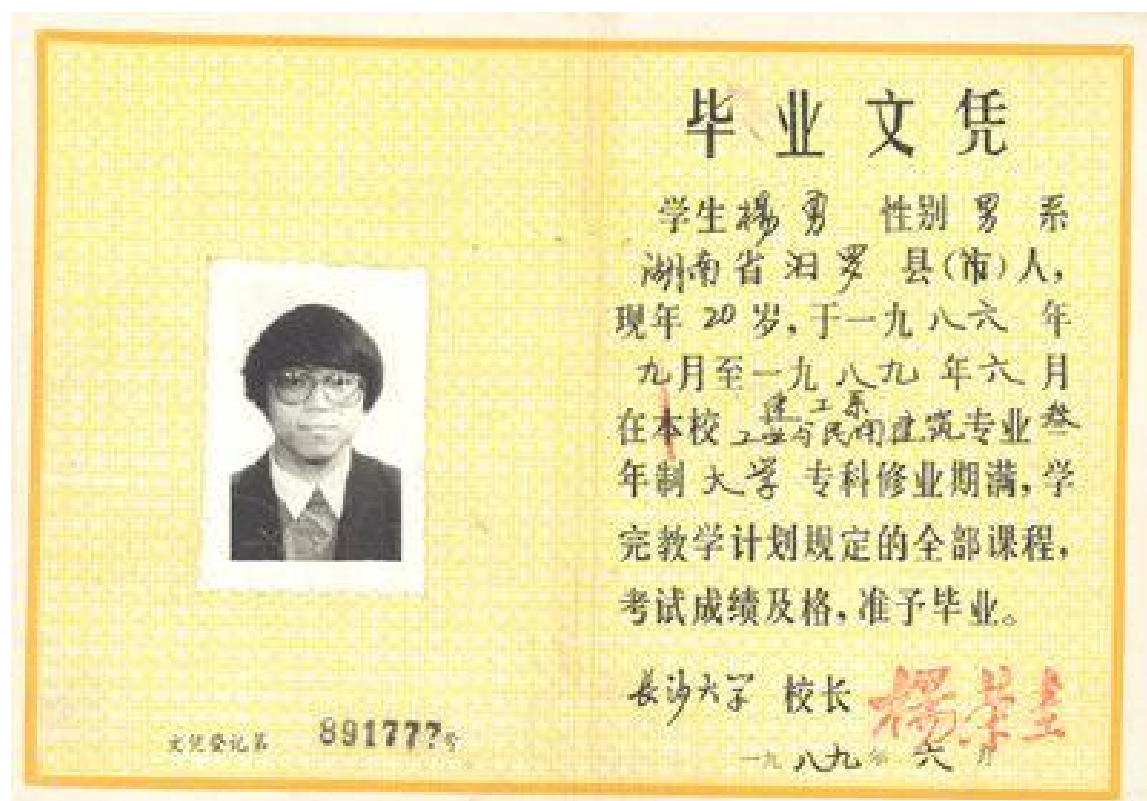 毕业文凭
学生 楊勇 性别 男 系
湖南省 汨罗 县(市)人,
现年 20 岁,于一九八六 年
九月至一九八九 年六月
建工系
在本校 工业与民用建筑专业叁
年制 大学 专科修业期满,学
完教学计划规定的全部课程,
考试成绩及格,准予毕业。
长沙大学 校长
一九八九年 六 月
文凭登记第 891777号